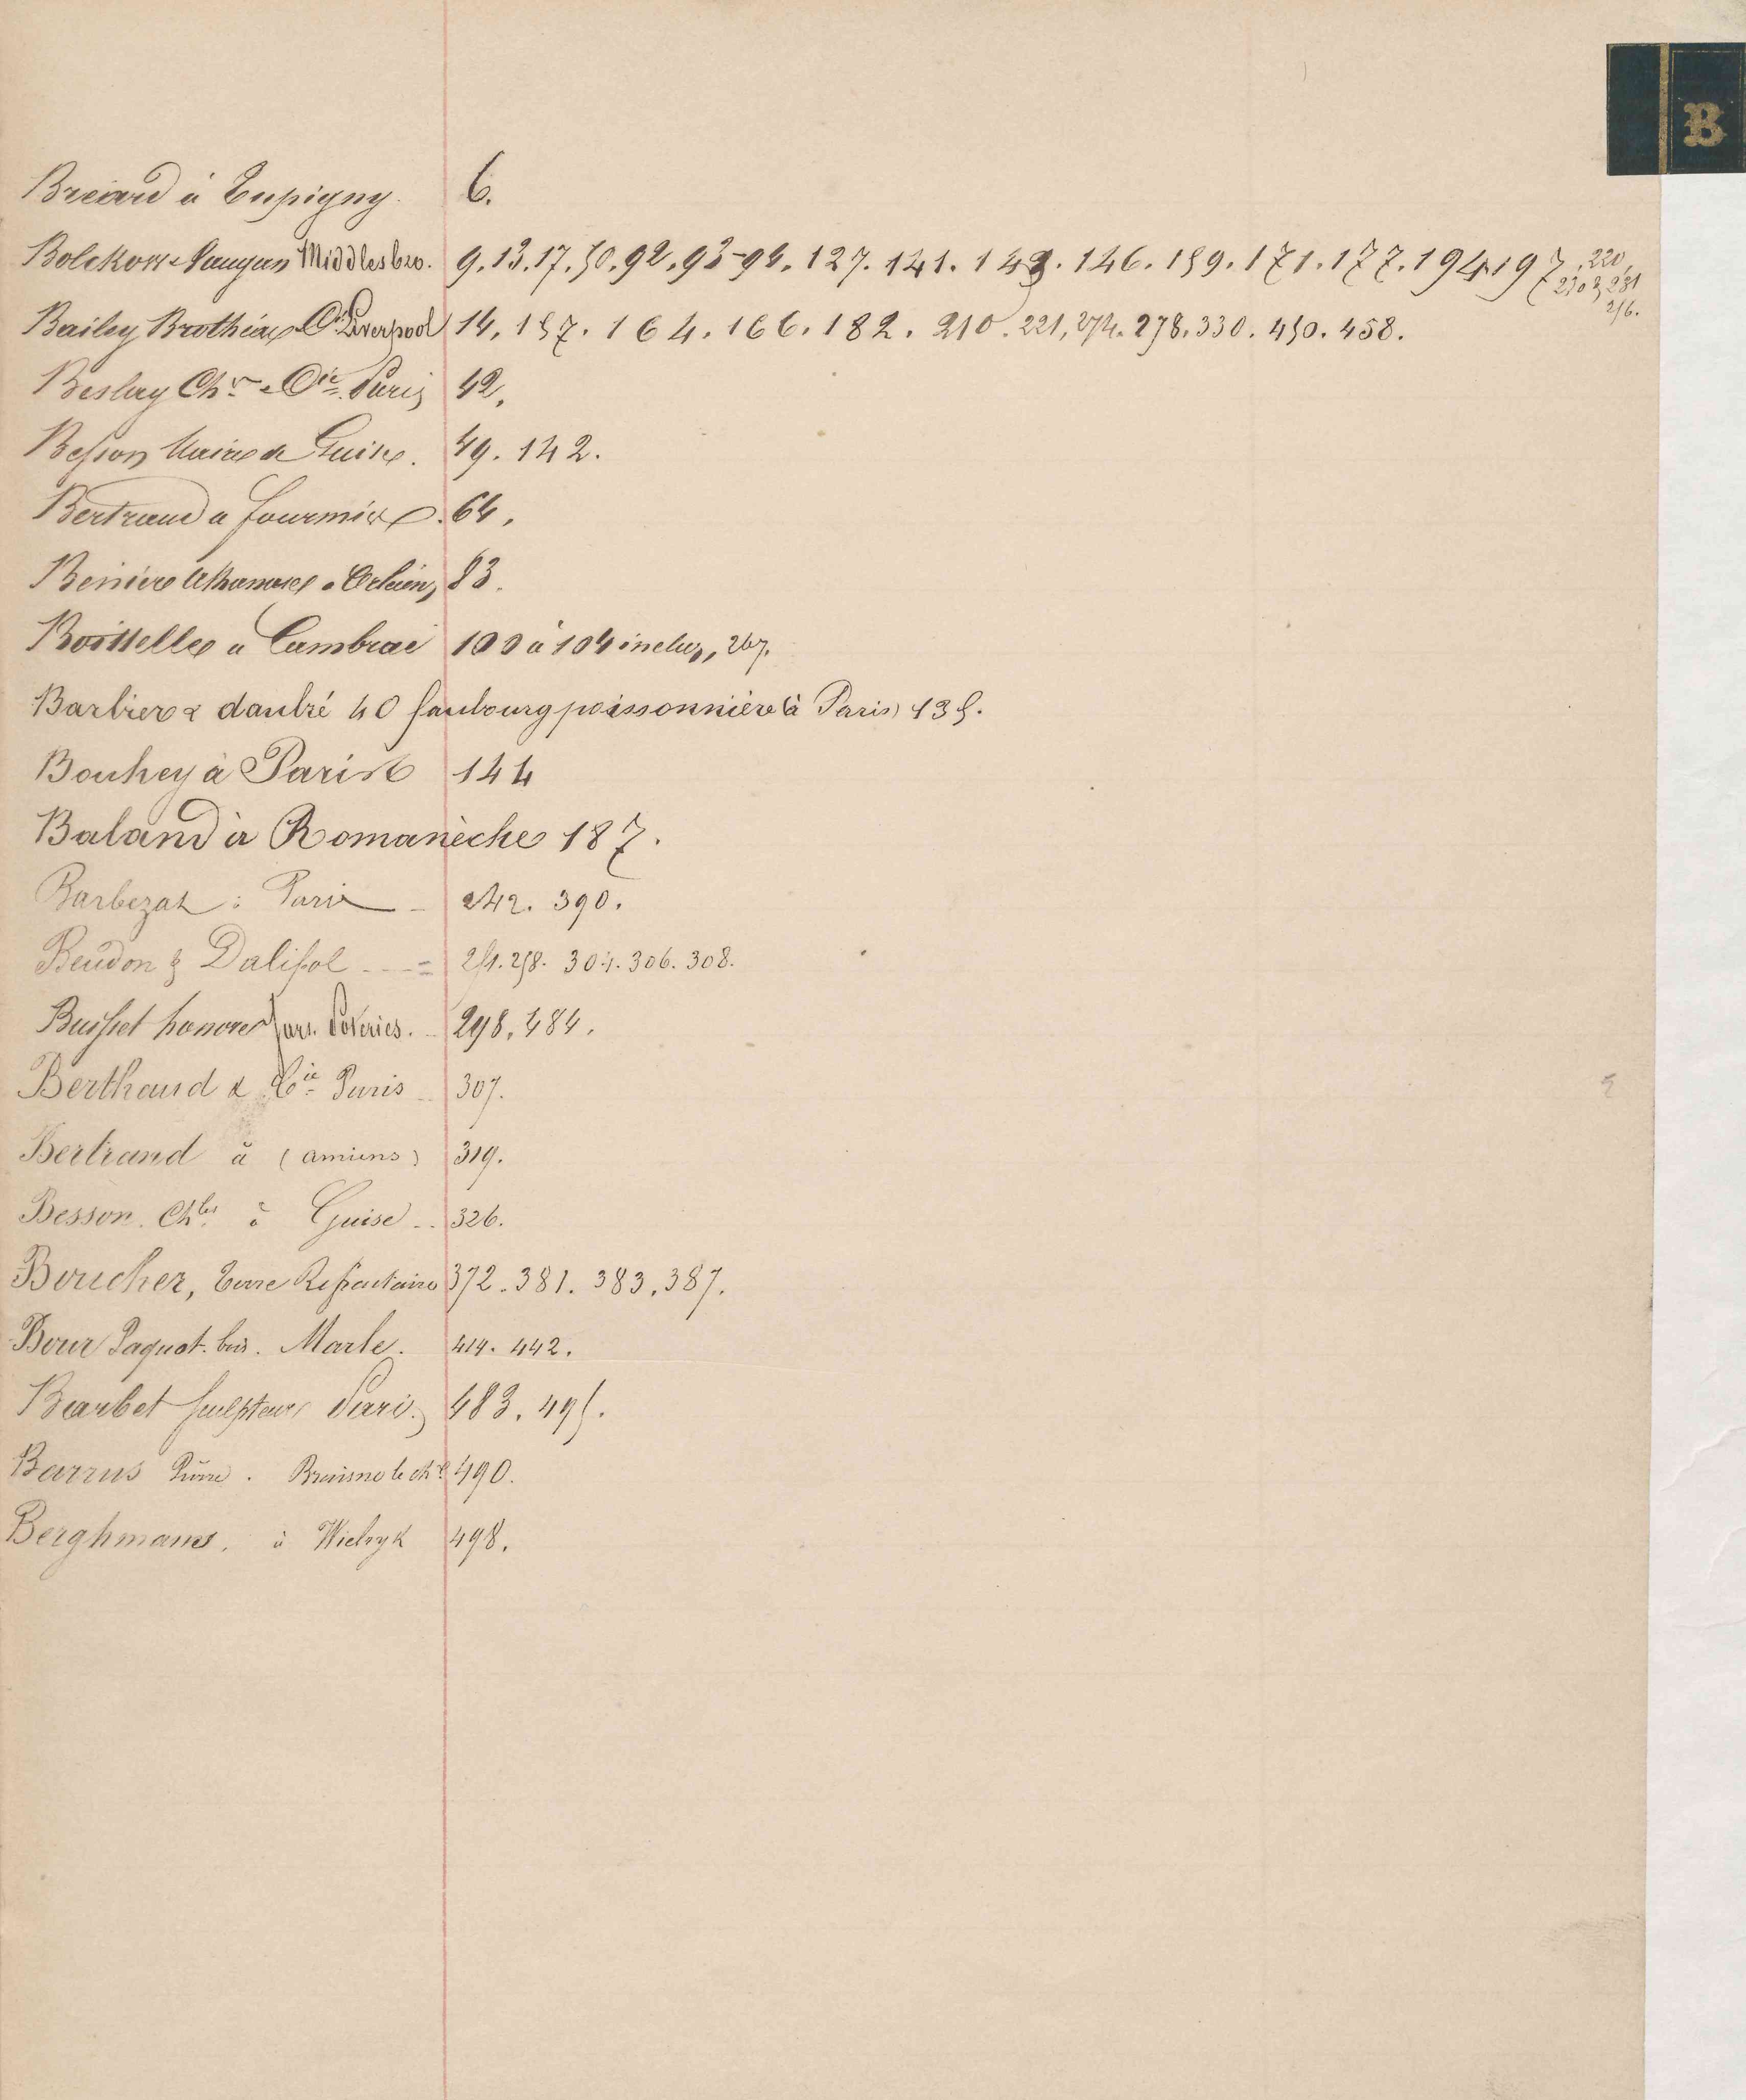 B
Breard à Tupigny. 6.
Bolckow & Vaugan Middlesbro. 9.13.17.50.92.93-94.127.141.143.146.159.171.177.194.197.220,
230 & 231
256.
Bailey Brothers & Cie Liverpool 14.157.164.166.182.210.221,274.278.330.450.458.
Beslay Ch. & Cie Paris 42.
Besson Maire de Guise. 49.142.
Bertrand a fourmies. 64.
83.
Boittelle a Cambrai 100 à 104 inclus, 267.
Barbier & daubré 40 faubourg poissonnière à Paris 135.
Bouhey à Paris 144
Baland à Romanèche 187.
Barbezat à Paris 242. 390.
Beudon & Dalifol 251.258. 304.306.308.
Buisset honoré four. Poteries. 298.484.
Berthaud & Cie Paris 307.
Bertrand à (amiens) 319.
Besson. Chles à Guise 326.
Boucher, terre Réfractaire 372.381.383.387.
Bour Paquot. bois. Marle. 414. 442.
Barbet sculpteur Paris. 483.495.
Barrus Pierre. Braisne le Ch 490.
Berghmans. à Wielryk 498.